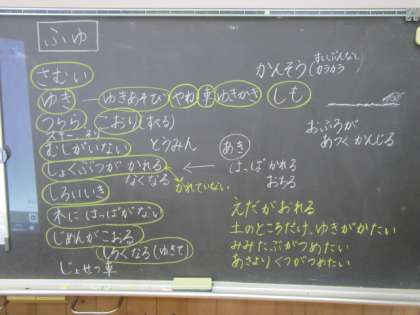 ふゆ
さむい
ゆき ー ゆきあそび やね 車 ゆきかき しも
かんそう
カラカラ
つらら こおり
むしがいない とうみん
あき
しょくぶつが かれる ← はっぱ かれる
なくなる かれていない おちる
しろいいき
木に はっぱがない
じめんがこおる
しろくなる(ゆきで)
じょせつ車
おふろが
あつくかんじる
えだがおれる
土のところだけ、ゆきがかたい
みみたぶがつめたい
あさより くつがつめたい